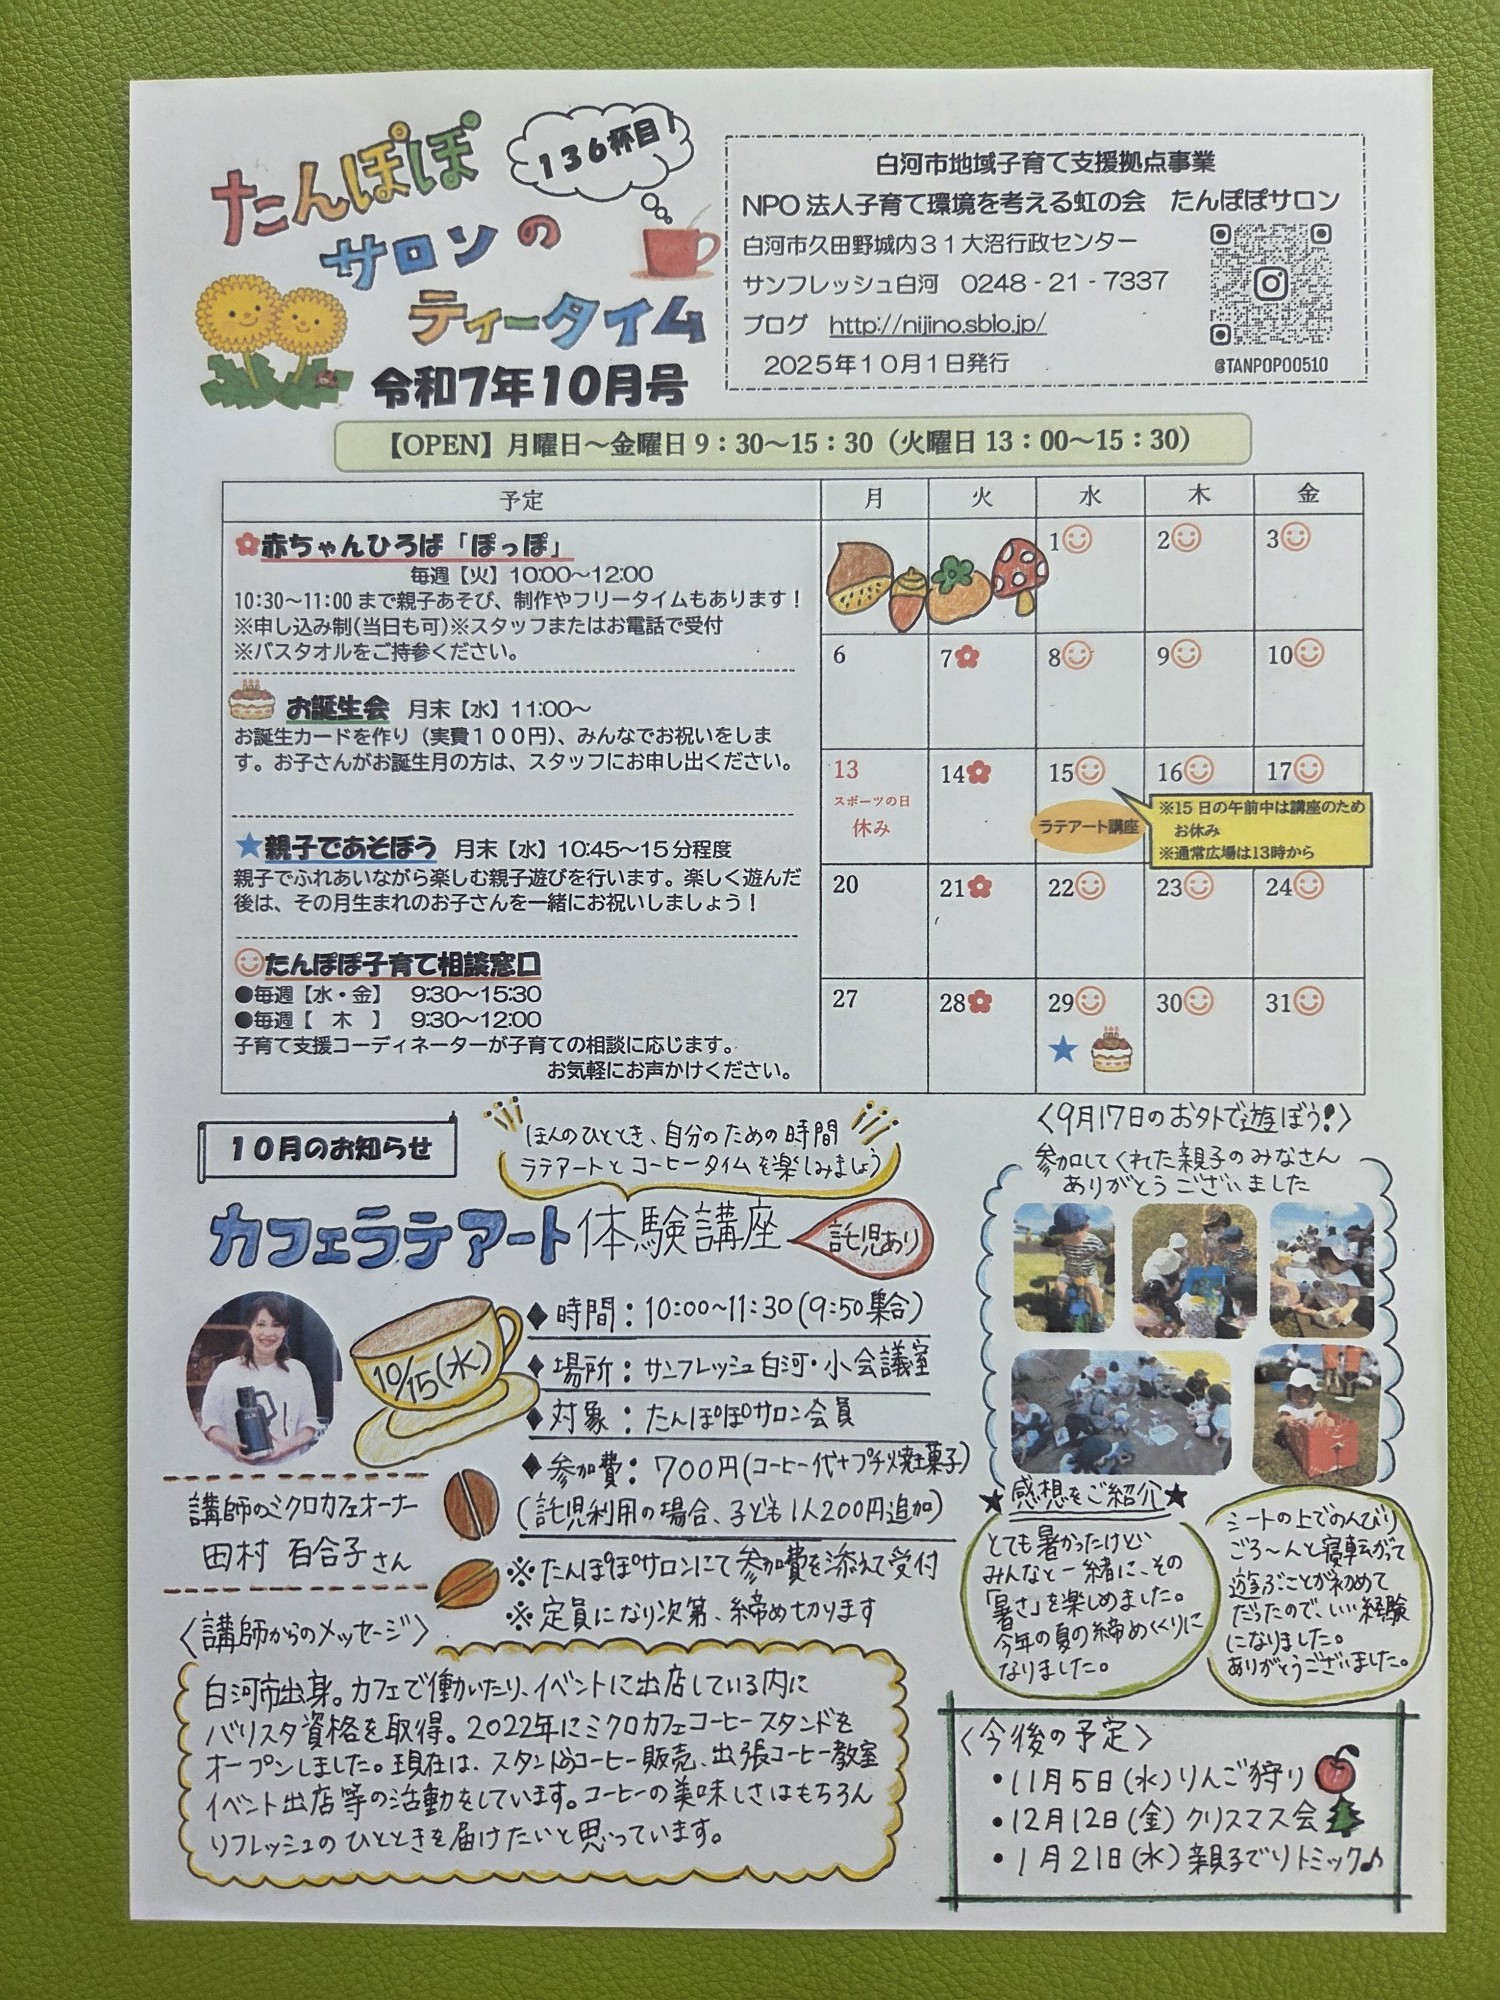 たんぽぽ
サロンの
ティータイム
136杯目!
令和7年10月号
白河市地域子育て支援拠点事業
NPO法人子育て環境を考える虹の会　たんぽぽサロン
白河市久田野城内31大沼行政センター
サンフレッシュ白河　0248-21-7337
ブログ　http://nijino.sblo.jp/
2025年10月1日発行
@TANPOPO0510
【OPEN】月曜日～金曜日9：30～15：30（火曜日13：00～15：30）
予定
赤ちゃんひろば「ぽっぽ」
毎週【火】10:00～12:00
10:30～11:00まで親子あそび、制作やフリータイムもあります！
※申し込み制(当日も可)※スタッフまたはお電話で受付
※バスタオルをご持参ください。
お誕生会　月末【水】11:00～
お誕生カードを作り（実費100円)、みんなでお祝いをしま
す。お子さんがお誕生月の方は、スタッフにお申し出ください。
★親子であそぼう　月末【水】10:45～15分程度
親子でふれあいながら楽しむ親子遊びを行います。楽しく遊んだ
後は、その月生まれのお子さんを一緒にお祝いしましょう！
たんぽぽ子育て相談窓口
●毎週【水・金】　9:30～15:30
●毎週【　木　】　9:30～12:00
子育て支援コーディネーターが子育ての相談に応じます。
お気軽にお声かけください。
月 火 水 木 金
1 2 3
6 7 8 9 10
13 14 15 16 17
スポーツの日
休み
ラテアート講座
※15日の午前中は講座のため
お休み
※通常広場は13時から
20 21 22 23 24
27 28 29 30 31
★
10月のお知らせ
ほんのひととき、自分のための時間
ラテアートとコーヒータイムを楽しみましょう
カフェラテアート体験講座
託児あり
10/15(水)
◆時間：10:00~11:30(9:50集合)
◆場所：サンフレッシュ白河・小会議室
◆対象：たんぽぽサロン会員
◆参加費：700円(コーヒー代+プチ焼菓子)
(託児利用の場合、子ども1人200円追加)
※たんぽぽサロンにて参加費を添えて受付
※定員になり次第、締め切ります
講師のミクロカフェオーナー
田村 百合子さん
〈講師からのメッセージ〉
白河市出身。カフェで働いたり、イベントに出店している内に
バリスタ資格を取得。2022年にミクロカフェコーヒースタンドを
オープンしました。現在は、スタンドのコーヒー販売、出張コーヒー教室
イベント出店等の活動をしています。コーヒーの美味しさはもちろん
リフレッシュのひとときを届けたいと思っています。
〈9月17日のお外で遊ぼう!〉
参加してくれた親子のみなさん
ありがとうございました
★感想をご紹介★
とても暑かったけど
みんなと一緒に、その
「暑さ」を楽しめました。
今年の夏の締めくくりに
なりました。
シートの上でのんびり
ごろ～んと寝転がって
遊ぶことが初めて
だったので、いい経験
になりました。
ありがとうございました。
〈今後の予定〉
・11月5日(水)りんご狩り
・12月12日(金)クリスマス会
・1月21日(水)親子でリトミック♪